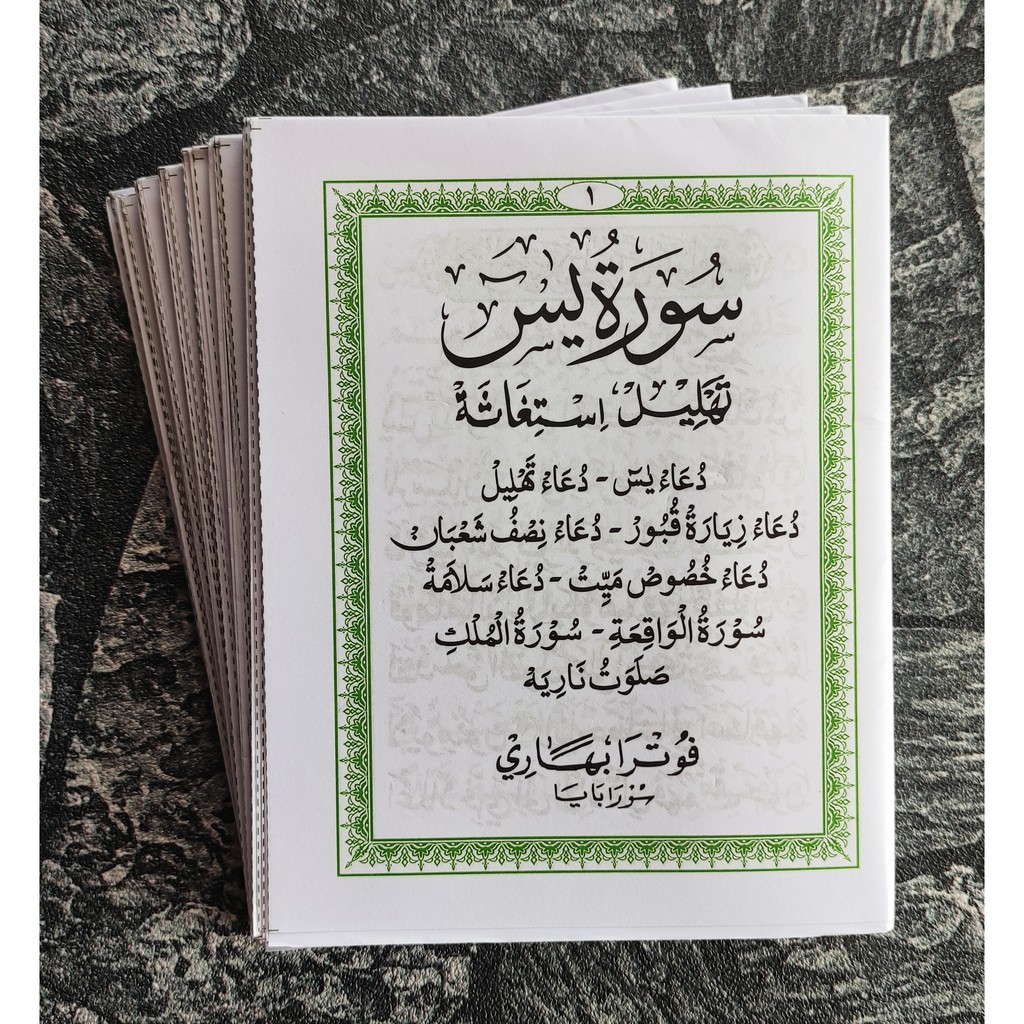 ١
سُوْرَةُ يٰسٓ
تَهْلِيْلْ اِسْتِغَاثَةْ
دُعَاءْ يٰسٓ - دُعَاءْ تَهْلِيْلْ
دُعَاءْ زِيَارَةْ قُبُوْرْ - دُعَاءْ نِصْفُ شَعْبَانْ
دُعَاءْ خُصُوْصْ مَيِّتْ - دُعَاءْ سَلَامَةْ
سُوْرَةُ الْوَاقِعَةِ - سُوْرَةُ الْمُلْكِ
صَلَوَتُ نَارِيَهْ
فُوْتْرَا بْهَارِي
سُوْرَابَايَا